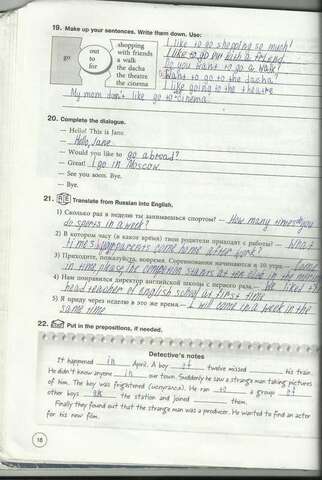 19. Make up your sentences. Write them down. Use:
go
out
to
for
shopping
with friends
a walk
the dacha
the theatre
the cinema
I like to go shopping so much!
I like to go out with a friend
Do you want to go a walk?
Want to go to the dacha?
I like going to the theatre
My mom don't like go to cinema
20. Complete the dialogue.
— Hello! This is Jane.
— Hello, Jane
— Would you like to go abroad?
— Great! I go in Moscow
— See you soon. Bye.
— Bye.
21. Translate from Russian into English.
1) Сколько раз в неделю ты занимаешься спортом? — How many times you
do sports in a week?
2) В котором часу (в какое время) твои родители приходят с работы? — What
time your parents come home after work?
3) Приходите, пожалуйста, вовремя. Соревнования начинаются в 10 утра. — Come
in time, please, the starts at ten o'clock in the
4) Нам понравился директор английской школы с первого раза. — We liked
head teacher of english school at first time
5) Я приду через неделю в это же время. — I will come in a week in the
same time
22. Put in the prepositions, if needed.
Detective's notes
It happened in April. A boy of twelve missed his train.
He didn't know anyone in our town. Suddenly he saw a strange man taking pictures
of him. The boy was frightened (испугался). He ran to a group of
other boys the station and joined them.
Finally they found out that the strange man was a producer. He wanted to find an actor
for his new film.
18